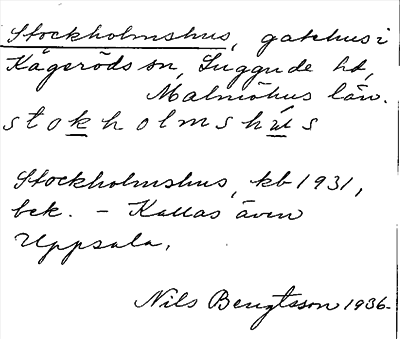 Stockholmshus, gatehus i
Kågeröds sn, Luggude hd,
Malmöhus län.
stokholmshús
Stockholmshus, kb 1931,
bek. – Kallas även
Uppsala.
Nils Bengtsson 1936.